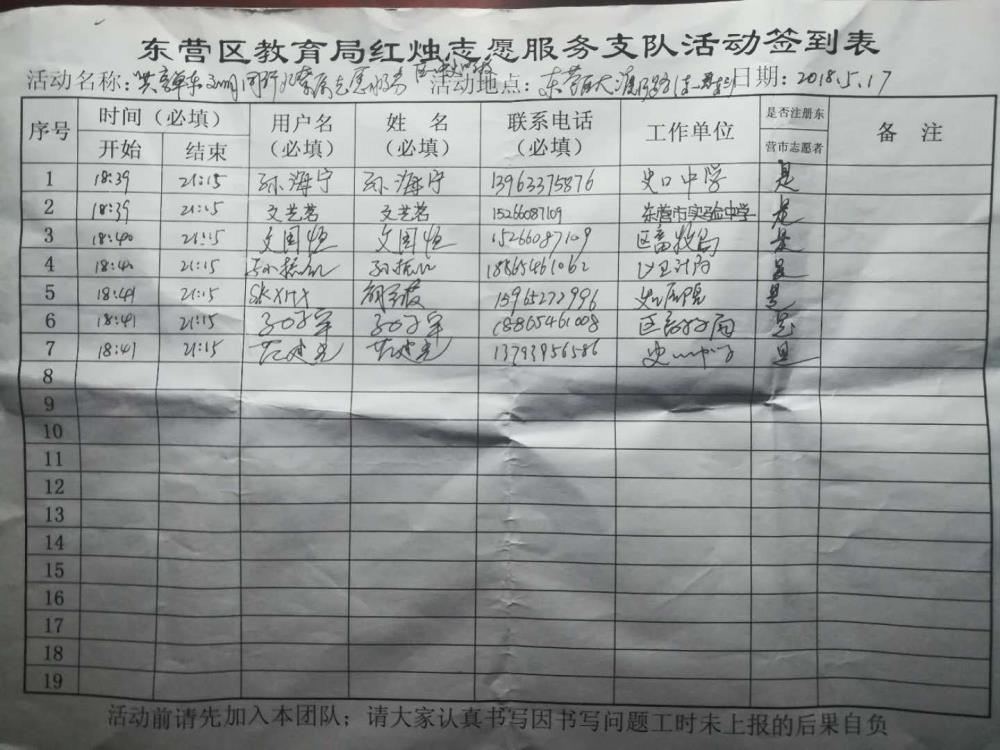 东营区教育局红烛志愿服务支队活动签到表
活动名称： 志愿服务 活动地点： 日期：2018.5.17
序号 时间（必填） 用户名（必填） 姓 名（必填） 联系电话（必填） 工作单位 是否注册东营市志愿者 备 注
开始 结束
1 18:39 21:15 孙海宁 孙海宁 13963375876 史口中学 是
2 18:39 21:15 文艺茗 文艺茗 15266087109 东营市实验中学 是
3 18:40 21:15 文国恒 文国恒 15266087109 区畜牧局 是
4 18:40 21:15 18865461062 是
5 18:41 21:15 15965272996 是
6 18:41 21:15 18865461008 是
7 18:41 21:15 13793956586 是
8
9
10
11
12
13
14
15
16
17
18
19
活动前请先加入本团队；请大家认真书写因书写问题工时未上报的后果自负